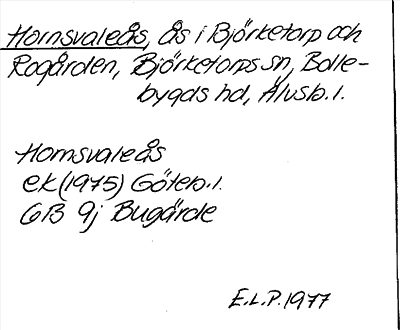 Hornsvaleås, ås i Björketorp och
Rogården, Björketorps sn, Bolle-
bygds hd, Älvsb. l.
Hornsvaleås
ek (1975) Göteb. l.
6B 9j Bugärde
E.L.P. 1977